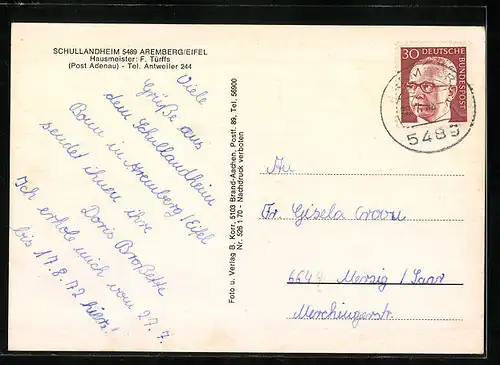 SCHULLANDHEIM 5489 AREMBERG/EIFEL
Hausmeister: F. Türffs
(Post Adenau) - Tel. Antweiler 244
Viele
Grüße aus
dem Schullandheim
Bonn in Aremberg/Eifel
sendet ihnen ihre
Doris
Ich erhole mich vom 27.7.
bis 17.8.72 hier!
Foto u. Verlag B. Korr, 5103 Brand-Aachen, Postf. 89, Tel. 56900
Nr. 528 1 70 - Nachdruck verboten
30 DEUTSCHE
BUNDESPOST
5489
An
Fr. Gisela
Merzig/Saar
Merchingerstr.